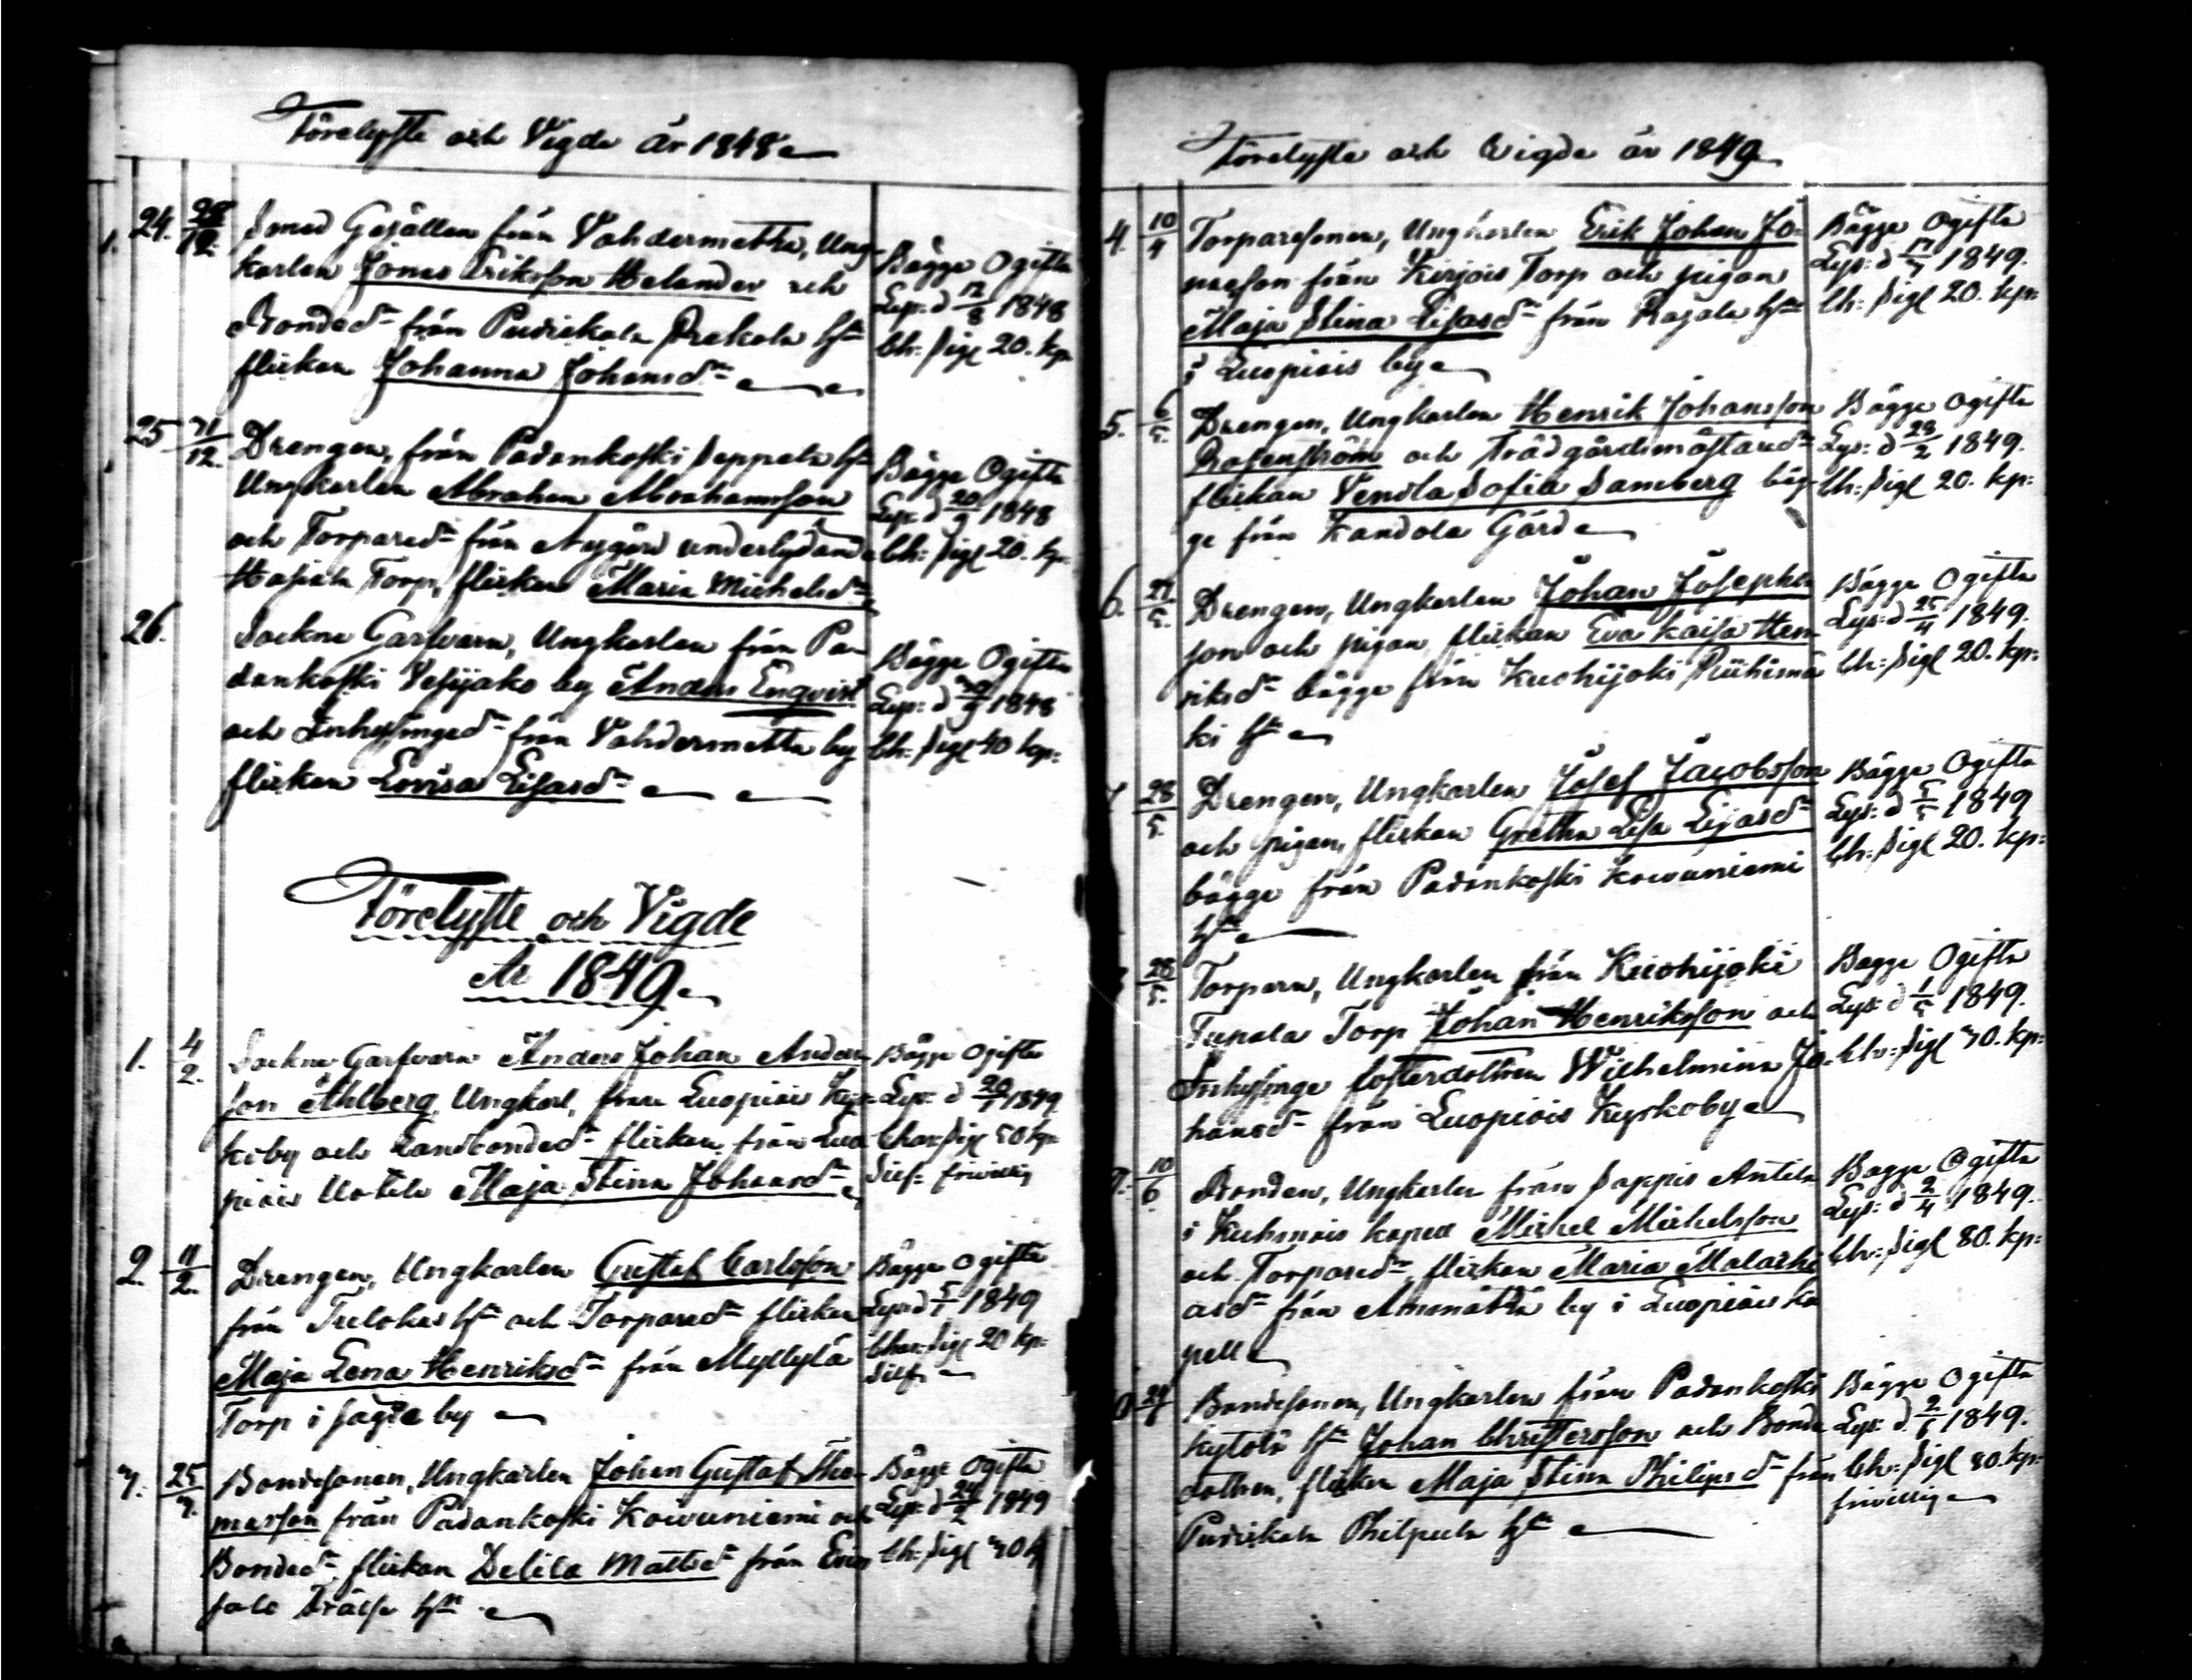 Förelyste och Vigde år 1848
24. 28/12. Smed Gesällen från Vahdermetta, Ung-
karlen Jonas Eriksson Helander och
Bonded:n från Pudiskala Prekola h:n
flickan Johanna Johansd:n
Bägge Ogifta
Lys: d 12/8 1848
Ch: Sigl 20. kp:
25 31/12. Drengen, från Padankoski Seppelä h:n
Ungkarlen Abraham Abrahamsson
och Torpared:n från Nygård underlydande
Torp, flickan Maria Michelsd:n
Bägge Ogifta
Lys: d 20/9 1848
Ch: Sigl 20. kp:
26. Sockne Garfvarn, Ungkarlen från Pa-
dankoski Vesijako by Anders Enqvist
och Inhysinged:n från Vahdermetta by
flickan Lovisa Lisasd:n
Bägge Ogifta
Lys: d 30/9 1848
Ch: Sigl 40 kp:
Förelyste och Vigde
År 1849.
1. 4/2. Sockne Garfvarn Anders Johan Anders-
son Ahlberg, Ungkarl, från Luopiois Kyr-
koby och Landbonded:n flickan, från Luo-
piois Uotila Maja Stina Johansd:n
Bägge Ogifta
Lys: d 20/1 1849
Char: Sigl 50 kp:
Silf: frivillig
2. 11/2. Drengen, Ungkarlen Gustaf Carlsson
från Trelokas h:n och Torpared:n flickan
Maja Lena Henriksd:n från Myllylä
Torp i by
Bägge Ogifta
Lys: d 5/1 1849
Char: Sigl 20 kp:
Silf:
3. 25/3. Bondesonen, Ungkarlen Johan Gustaf Tho-
masson från Padankoski Koivuniemi och
Bonded:n flickan Delila Mattsd:n från Evin-
salo Frälse h:n
Bägge Ogifta
Lys: d 24/2 1849
Ch: Sigl 30 k
Förelyste och Vigde år 1849
4. 10/4 Torparesonen, Ungkarlen Erik Johan Jo-
nasson från Kirjois Torp och pigan
Maja Stina Lisasd:n från Rajala h:n
i Luopiois by
Bägge Ogifta
Lys: d 17/3 1849.
Ch: Sigl 20. kp:
5. 6/5. Drengen, Ungkarlen Henrik Johansson
Rosenström och Trädgårdsmästared:n
flickan Vendla Sofia Samberg bäg-
ge från Kandola Gård
Bägge Ogifta
Lys: d 28/2 1849.
Ch: Sigl 20. kp:
6. 27/5. Drengen, Ungkarlen Johan Josephs-
son och pigan, flickan Eva Kaisa Hen-
riksd:n bägge från Kuohijoki Riihimä-
ki h:n
Bägge Ogifta
Lys: d 25/4 1849.
Ch: Sigl 20. kp:
28/5. Drengen, Ungkarlen Josef Jacobsson
och pigan, flickan Gretha Lisa Lisasd:n
bägge från Padankoski Koivuniemi
h:n
Bägge Ogifta
Lys: d 5/5 1849
Ch: Sigl 20. kp:
28/5. Torparn, Ungkarlen från Kuohijoki
Tupala Torp Johan Henriksson och
Inhysinge fosterdottren Wilhelmina Jo-
hansd:n från Luopiois Kyrkoby
Bägge Ogifta
Lys: d 1/5 1849.
Ch: Sigl 30. kp:
9. 10/6 Bonden, Ungkarlen från Sappis Antila
i Kuhmois kapell Mickel Mickelsson
och Torpared:n, flickan Maria Malachi-
asd:n från Ammättä by i Luopiois ka-
pell
Bägge Ogifta
Lys: d 2/4 1849.
Ch: Sigl 80. kp:
24/6 Bondesonen, Ungkarlen från Padankoski
Kytölä h:n Johan Christersson och Bonde-
dottren, flickan Maja Stina Philipsd:n från
Pudiskala Philpula h:n
Bägge Ogifta
Lys: d 2/6 1849.
Ch: Sigl 80. kp:
frivillig